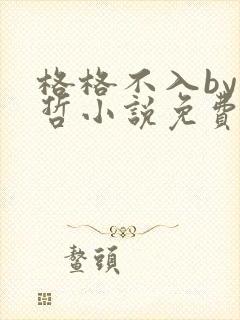 格格不入by
哲小説免費
鳌頭